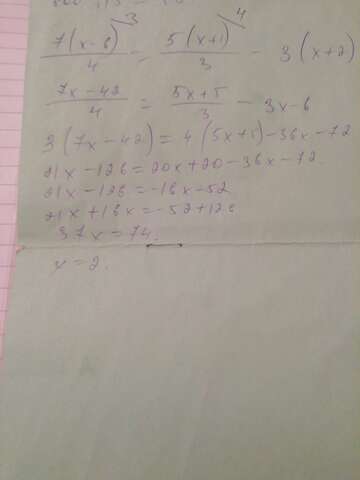 7(x-6)\3 / 4 = 5(x+1)\4 / 3 - 3(x+2)
7x-42 / 4 = 5x+5 / 3 - 3x-6
3(7x-42)=4(5x+5)-36x-72
21x-126=20x+20-36x-72
21x-126=-16x-52
21x+16x=-52+126
37x=74.
x=2.